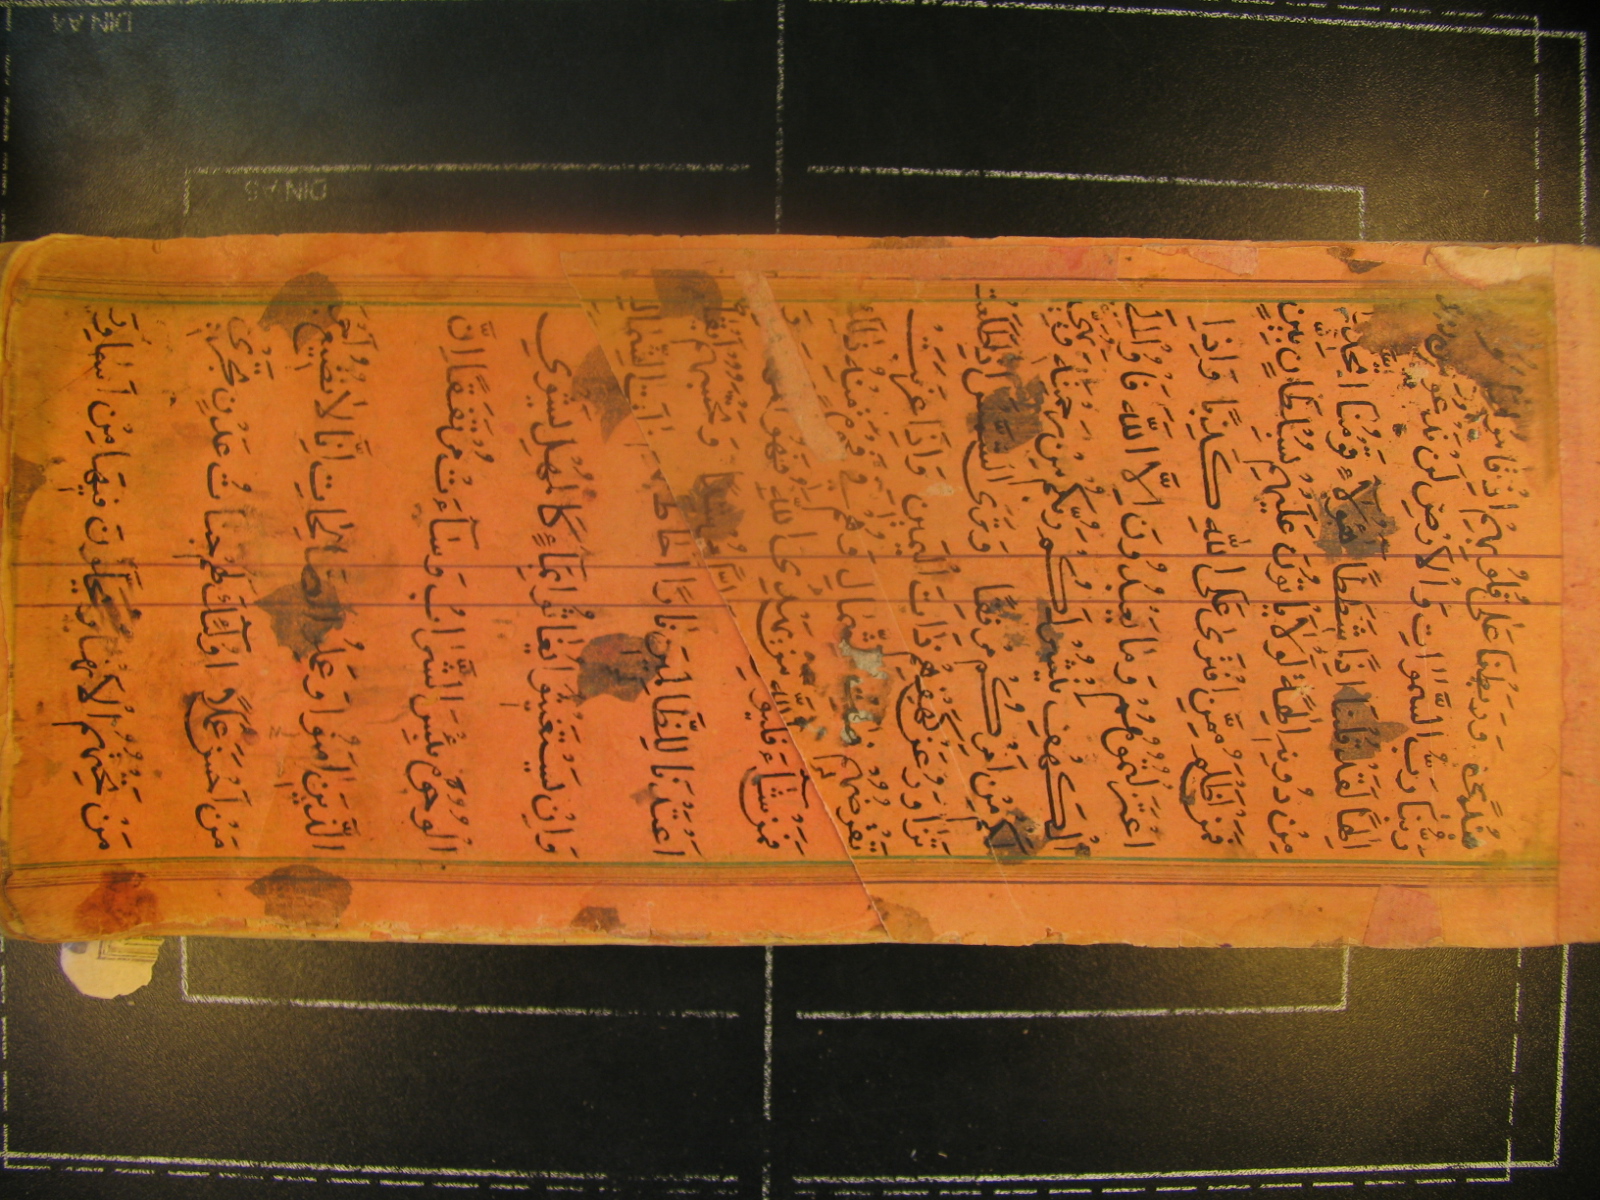 هُدًى وَرَبَطْنَا عَلَى قُلُوبِهِمْ اِذْ قَامُوا
رَبُّنَا رَبُّ السَّمٰوَاتِ وَالْاَرْضِ لَنْ نَدْعُوَ
اِلٰهًا لَقَدْ قُلْنَا اِذًا شَطَطًا هٰؤُلَاءِ قَوْمُنَا اتَّخَذُوا
مِنْ دُونِهِ اٰلِهَةً لَوْلَا يَأْتُونَ عَلَيْهِمْ بِسُلْطَانٍ بَيِّنٍ
فَمَنْ اَظْلَمُ مِمَّنِ افْتَرَى عَلَى اللّٰهِ كَذِبًا وَاِذِ
اعْتَزَلْتُمُوهُمْ وَمَا يَعْبُدُونَ اِلَّا اللّٰهَ فَأْوُوا اِلَى
الْكَهْفِ يَنْشُرْ لَكُمْ رَبُّكُمْ مِنْ رَحْمَتِهِ وَيُهَيِّئْ
لَكُمْ مِنْ اَمْرِكُمْ مِرْفَقًا وَتَرَى الشَّمْسَ اِذَا طَلَعَتْ
تَزَاوَرُ عَنْ كَهْفِهِمْ ذَاتَ الْيَمِينِ وَاِذَا غَرَبَتْ
تَقْرِضُهُمْ ذَاتَ الشِّمَالِ وَهُمْ فِي فَجْوَةٍ مِنْهُ ذٰلِكَ
اللّٰهِ مَنْ يَهْدِى اللّٰهُ فَهُوَ
فَمَنْ شَاءَ
وَتَحْسَبُهُمْ
اَعْتَدْنَا لِلظَّالِمِينَ نَارًا اَحَاطَ
الشِّمَالِ
وَاِنْ يَسْتَغِيثُوا يُغَاثُوا بِمَاءٍ كَالْمُهْلِ يَشْوِي
الْوُجُوهَ بِئْسَ الشَّرَابُ وَسَاءَتْ مُرْتَفَقًا اِنَّ
الَّذِينَ اٰمَنُوا وَعَمِلُوا الصَّالِحَاتِ اِنَّا لَا نُضِيعُ اَجْرَ
مَنْ اَحْسَنَ عَمَلًا اُولٰئِكَ لَهُمْ جَنَّاتُ عَدْنٍ تَجْرِي
مِنْ تَحْتِهِمُ الْاَنْهَارُ يُحَلَّوْنَ فِيهَا مِنْ اَسَاوِرَ
DIN A4
DIN A5